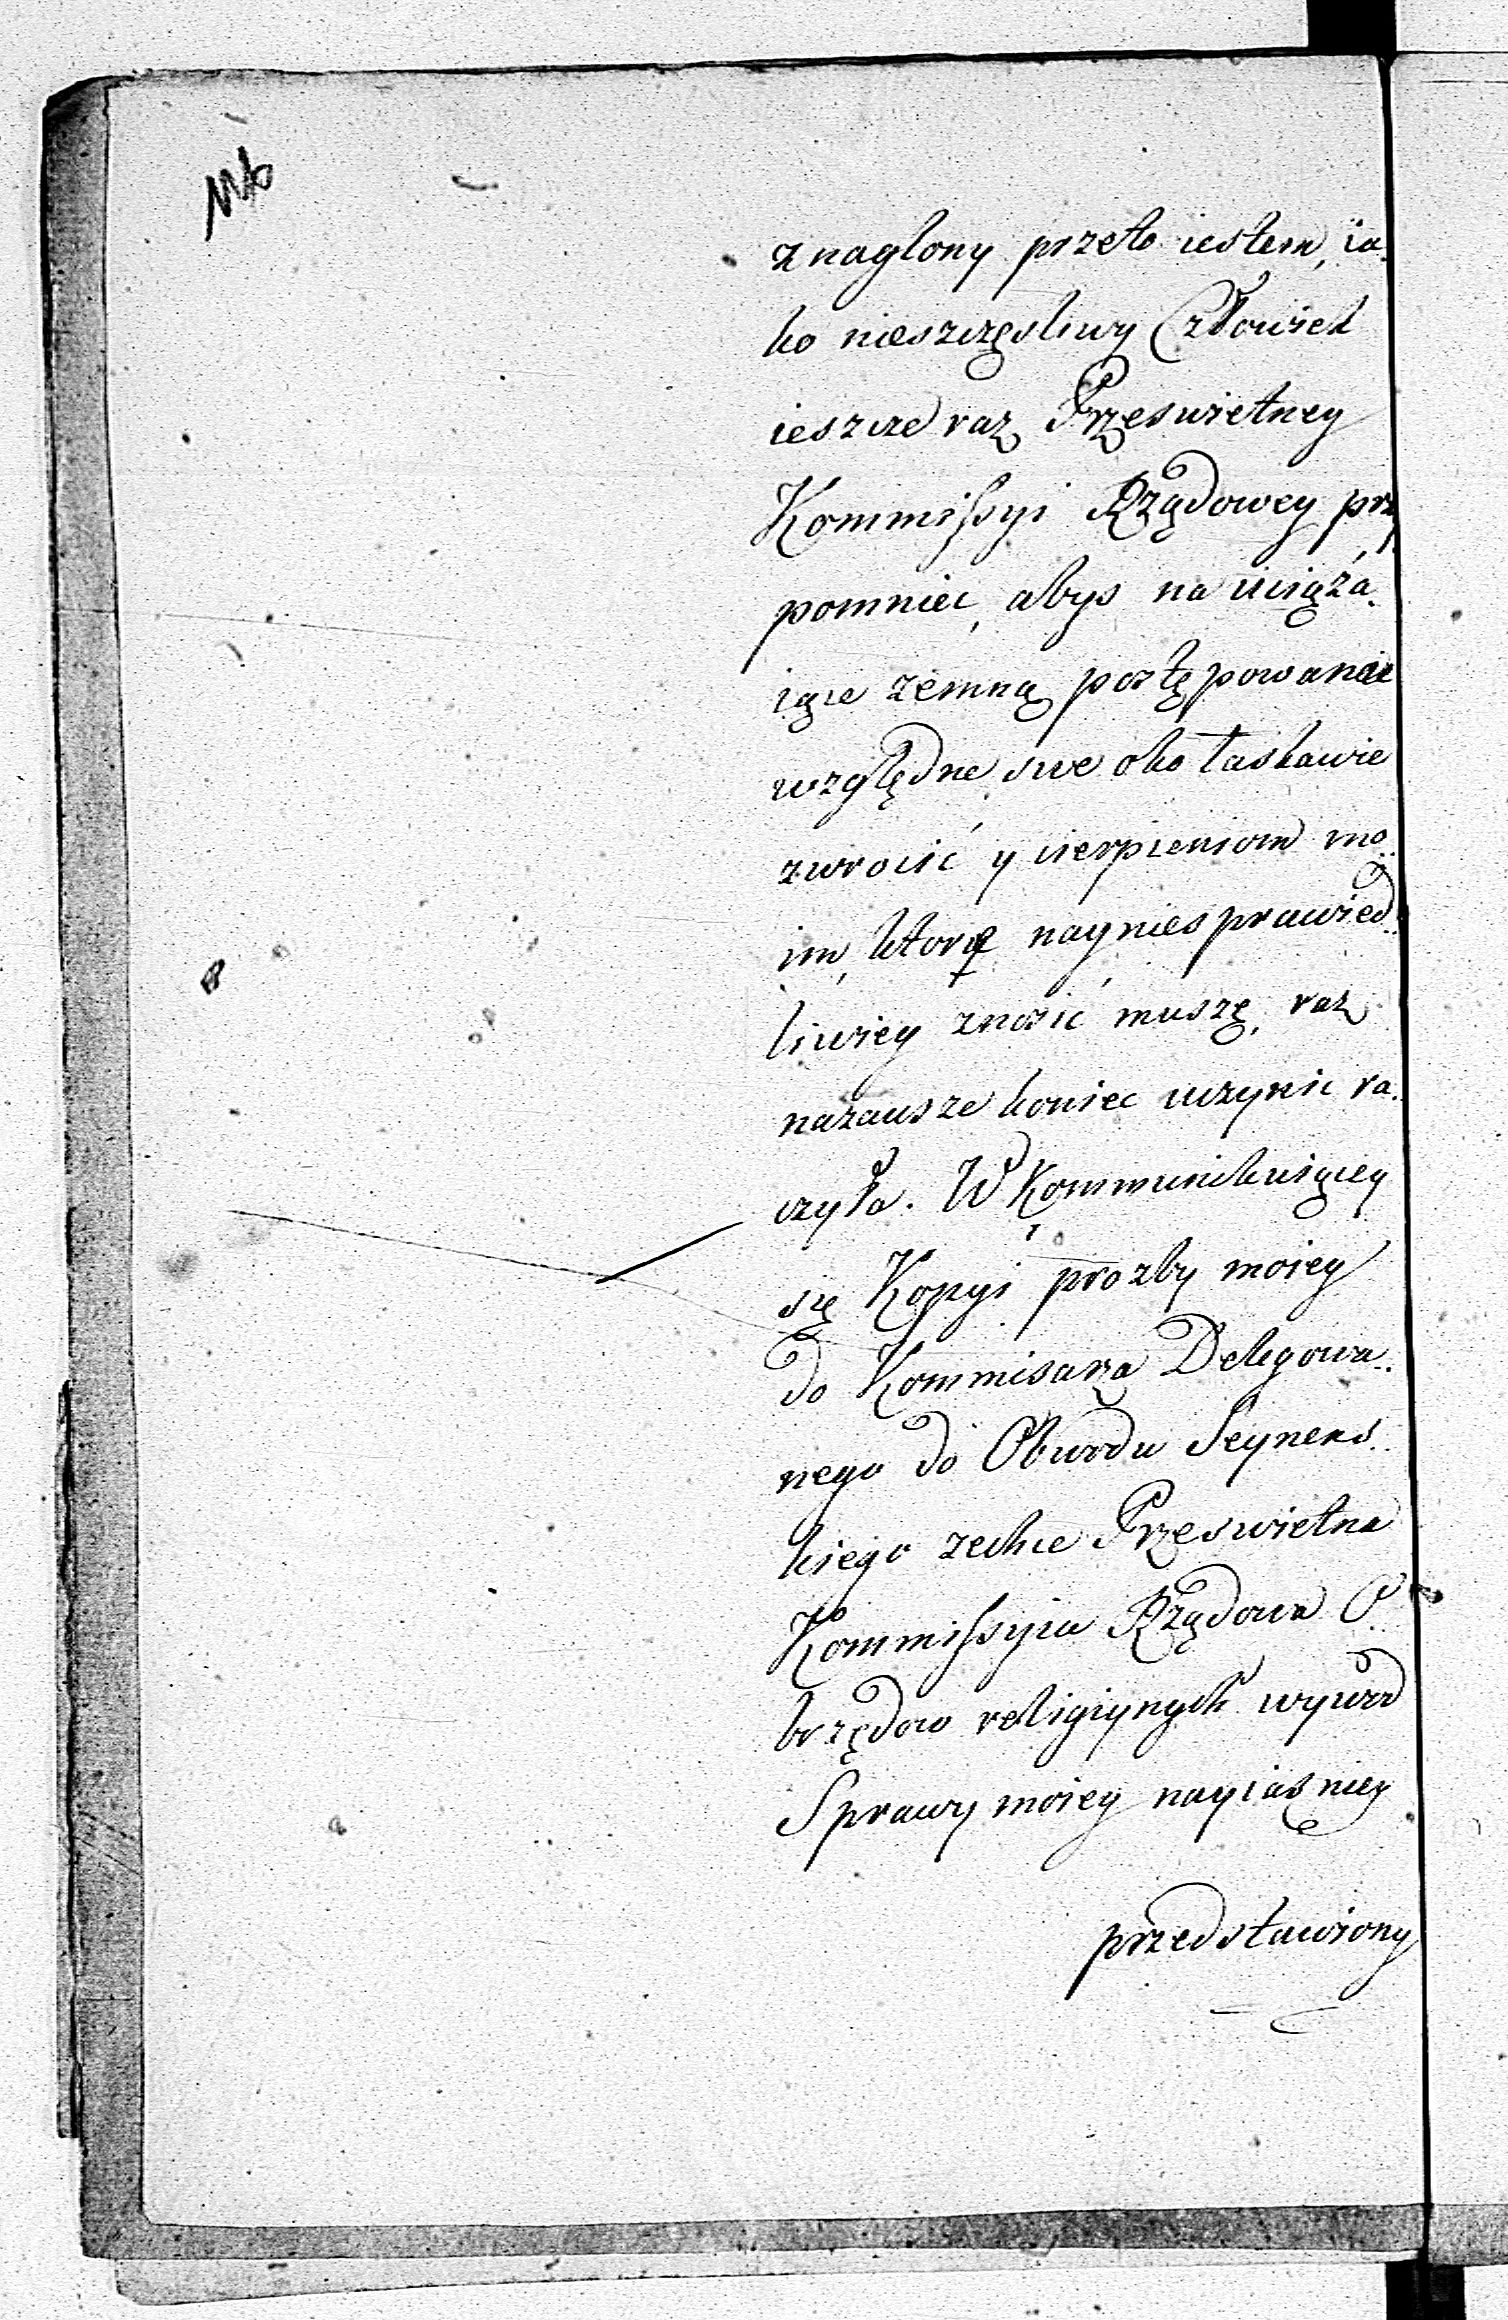 znaglony przeto iestem, ia-
ko nieszczęsliwy Człowiek
ieszcze raz Prześwietney
Kommissyi Rządowey przy
pomnieć, abys na uciąża-
iące zemną postępowanie
względne swe oko łaskawie
zwrocić y cierpieniom mo-
im, ktore nayniesprawied-
liwiey znosić muszę, raz
nazawsze koniec uczynic ra-
czyła. W Kommunikuiącey
się Kopyi prozby moiey
do Kommisarza Delegowa-
nego do Obwodu Seynens-
kiego zechce Prześwietna
Kommissyia Rządowa O-
brzędow religiynych wywod
Sprawy moiey nayiasniey
przedstawiony